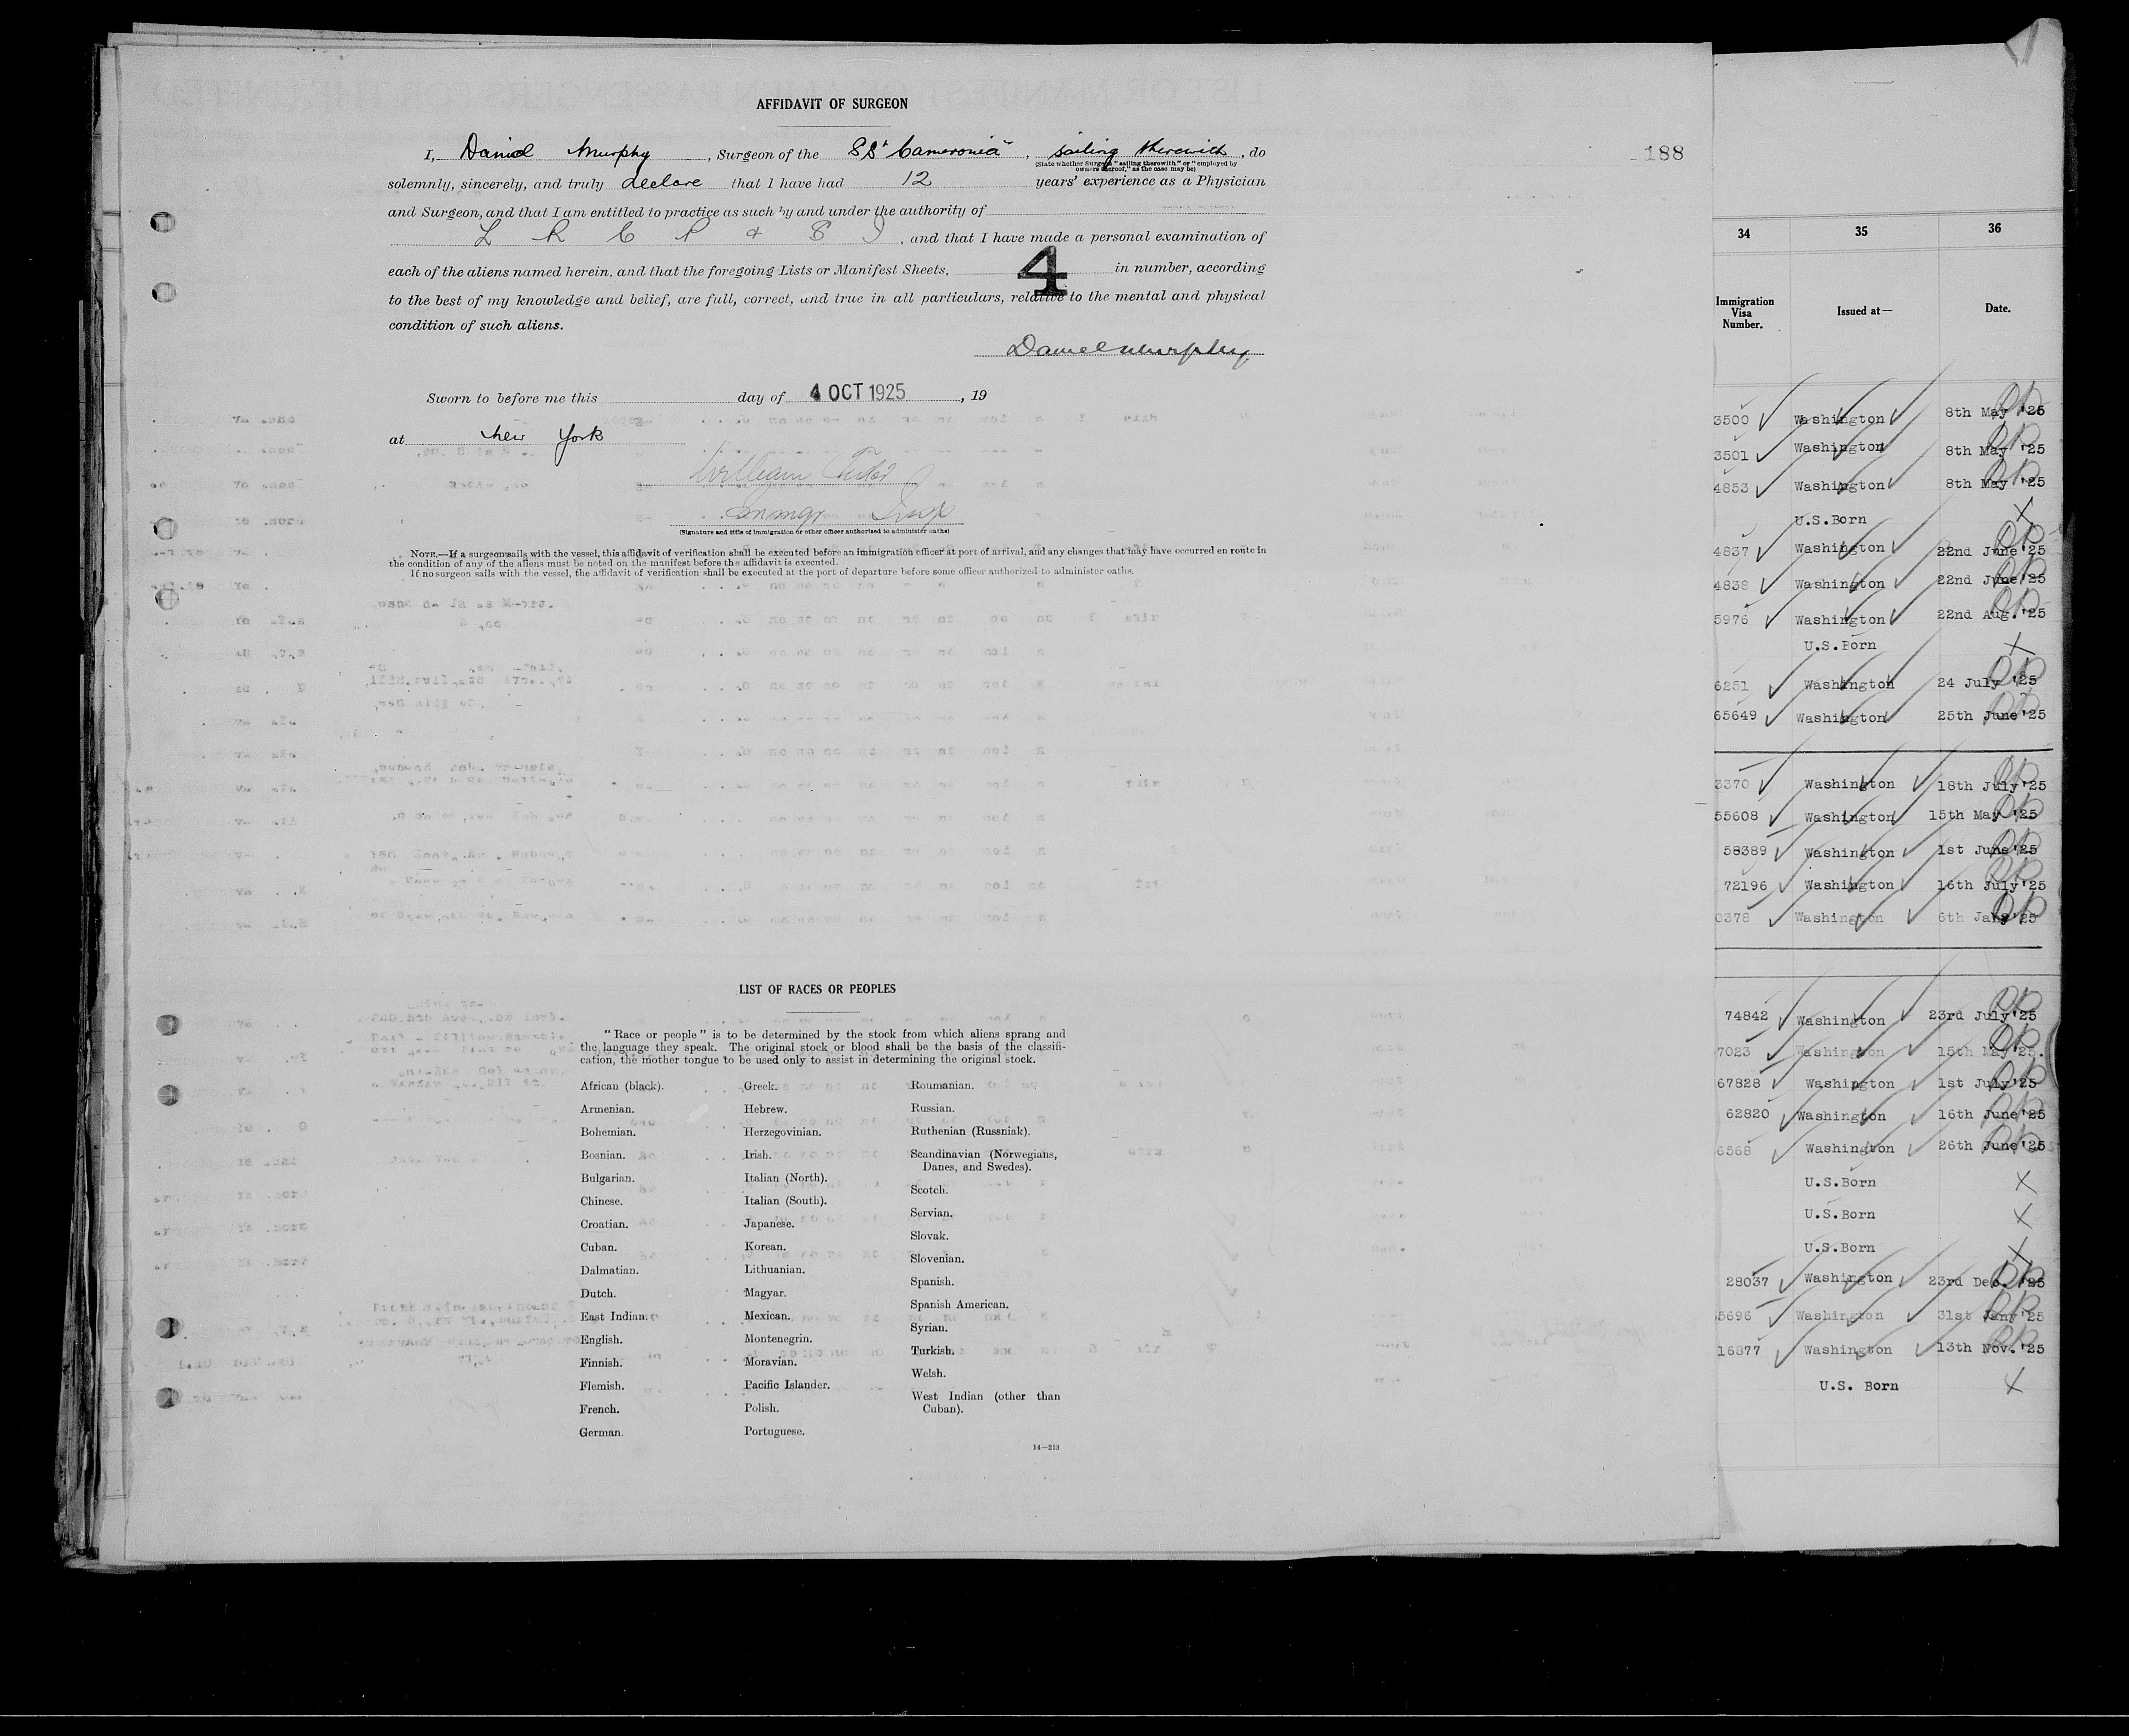 AFFIDAVIT OF SURGEON
188
I, Daniel Murphy, Surgeon of the SS "Cameronia", sailing therewith, do
(State whether Surgeon "sailing therewith" or "employed by
owners thereof," as the case may be)
solemnly, sincerely, and truly declare that I have had 12 years' experience as a Physician
and Surgeon, and that I am entitled to practice as such by and under the authority of
L R C P & S I, and that I have made a personal examination of
each of the aliens named herein, and that the foregoing Lists or Manifest Sheets, 4 in number, according
to the best of my knowledge and belief, are full, correct, and true in all particulars, relative to the mental and physical
condition of such aliens.
Daniel Murphy
Sworn to before me this day of 4 OCT 1925, 19
at New York
William
Immgr Insp
(Signature and title of immigration or other officer authorized to administer oaths)
NOTE.—If a surgeon sails with the vessel, this affidavit of verification shall be executed before an immigration officer at port of arrival, and any changes that may have occurred en route in
the condition of any of the aliens must be noted on the manifest before the affidavit is executed.
If no surgeon sails with the vessel, the affidavit of verification shall be executed at the port of departure before some officer authorized to administer oaths.
LIST OF RACES OR PEOPLES
"Race or people" is to be determined by the stock from which aliens sprang and
the language they speak. The original stock or blood shall be the basis of the classifi-
cation, the mother tongue to be used only to assist in determining the original stock.
African (black).
Armenian.
Bohemian.
Bosnian.
Bulgarian.
Chinese.
Croatian.
Cuban.
Dalmatian.
Dutch.
East Indian.
English.
Finnish.
Flemish.
French.
German.
Greek.
Hebrew.
Herzegovinian.
Irish.
Italian (North).
Italian (South).
Japanese.
Korean.
Lithuanian.
Magyar.
Mexican.
Montenegrin.
Moravian.
Pacific Islander.
Polish.
Portuguese.
Roumanian.
Russian.
Ruthenian (Russniak).
Scandinavian (Norwegians,
Danes, and Swedes).
Scotch.
Servian.
Slovak.
Slovenian.
Spanish.
Spanish American.
Syrian.
Turkish.
Welsh.
West Indian (other than
Cuban).
14—213
34 35 36
Immigration
Visa
Number.
Issued at—
Date.
3500 Washington 8th May '25
3501 Washington 8th May '25
4853 Washington 8th May '25
U.S.Born
4837 Washington 22nd June'25
4838 Washington 22nd June'25
5976 Washington 22nd Aug.'25
U.S.Born
6251 Washington 24 July '25
65649 Washington 25th June'25
3370 Washington 18th July'25
55608 Washington 15th May '25
58389 Washington 1st June'25
72196 Washington 16th July'25
0378 Washington 6th Jany'25
74842 Washington 23rd July'25
7023 Washington 15th May'25.
67828 Washington 1st July'25
62820 Washington 16th June'25
6568 Washington 26th June'25
U.S.Born
U.S.Born
U.S.Born
28037 Washington 23rd Dec. '25
5696 Washington 31st Jany'25
16877 Washington 13th Nov.'25
U.S. Born